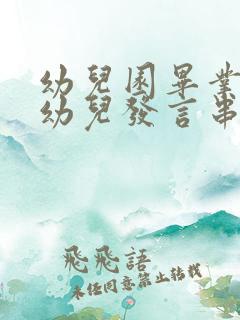 幼兒園畢業
幼兒發言串
飛飛語
未經同意禁止轉載